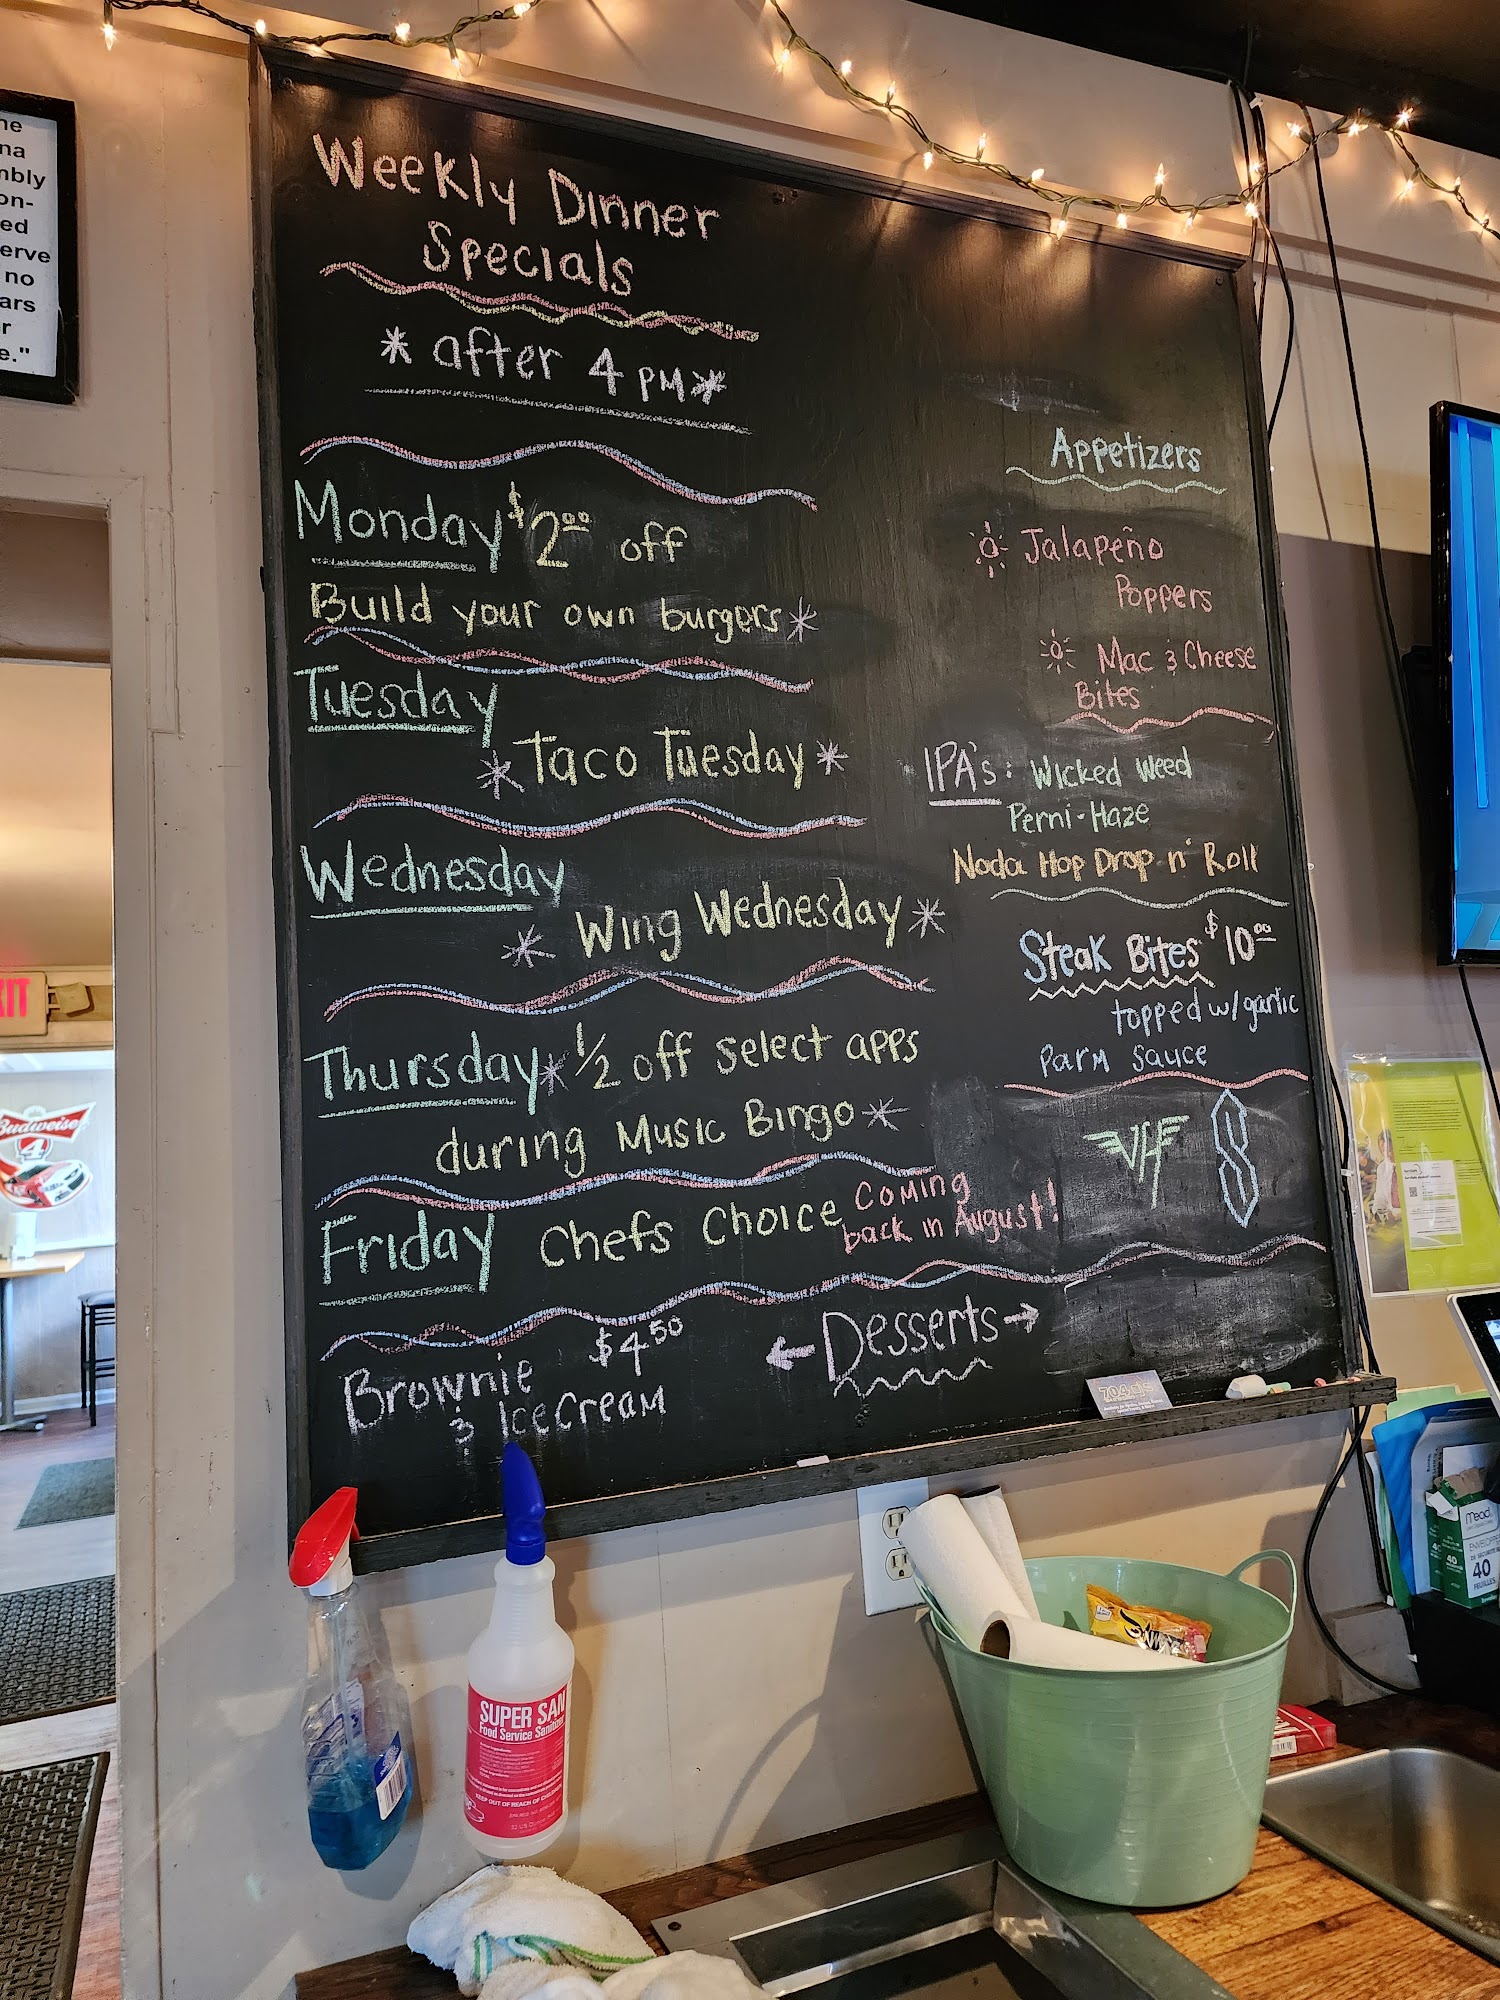 Weekly Dinner
Specials
* after 4 PM *
Monday $2.00 off
Build your own burgers *
Tuesday
* Taco Tuesday *
Wednesday
* Wing Wednesday *
Thursday * 1/2 off select apps
during Music Bingo *
Friday Chefs Choice Coming
back in August!
Brownie $4.50
& Ice Cream
← Desserts →
Appetizers
Jalapeño
Poppers
Mac & Cheese
Bites
IPA's: Wicked Weed
Perni-Haze
Noda Hop Drop n' Roll
Steak Bites $10.00
topped w/ garlic
Parm Sauce
VH
S
he
na
mbly
on-
ed
erve
no
ars
r
e."
XIT
Budweiser
4
704
SUPER SAN
Food Service Sanitizer
KEEP OUT OF REACH OF CHILDREN
Mead
40
40
FEUILLES